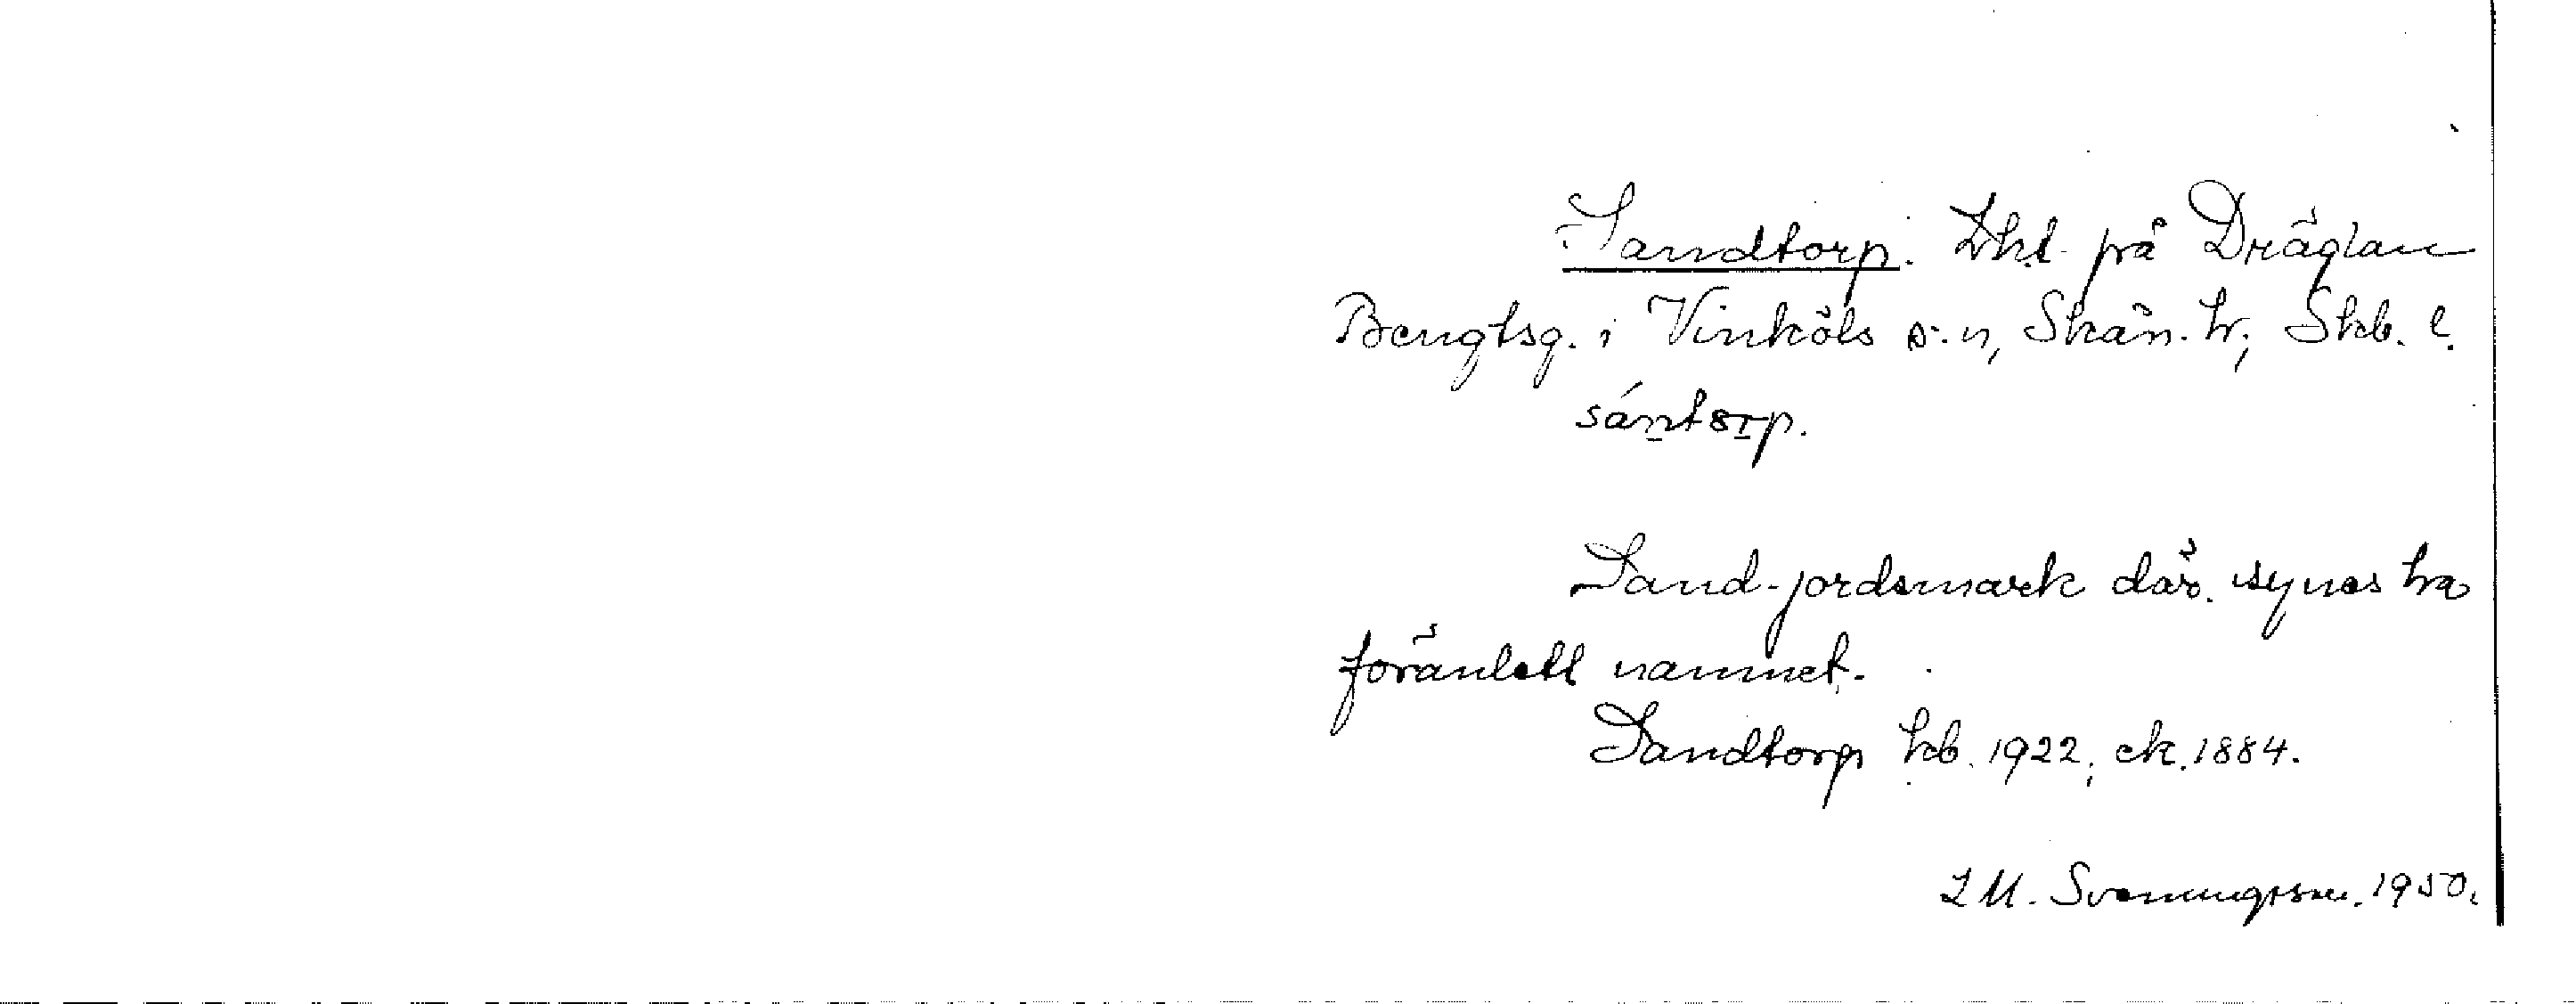 Sandtorp. Lht på Dräglan
Bengtsg. i Vinköls s:n, Skån. h., Skb. l.
sántorp.
Sand-jordsmark där. synes ha
föranlett namnet.
Sandtorp kb. 1922, ek. 1884.
I M. Svenungsson. 1950.